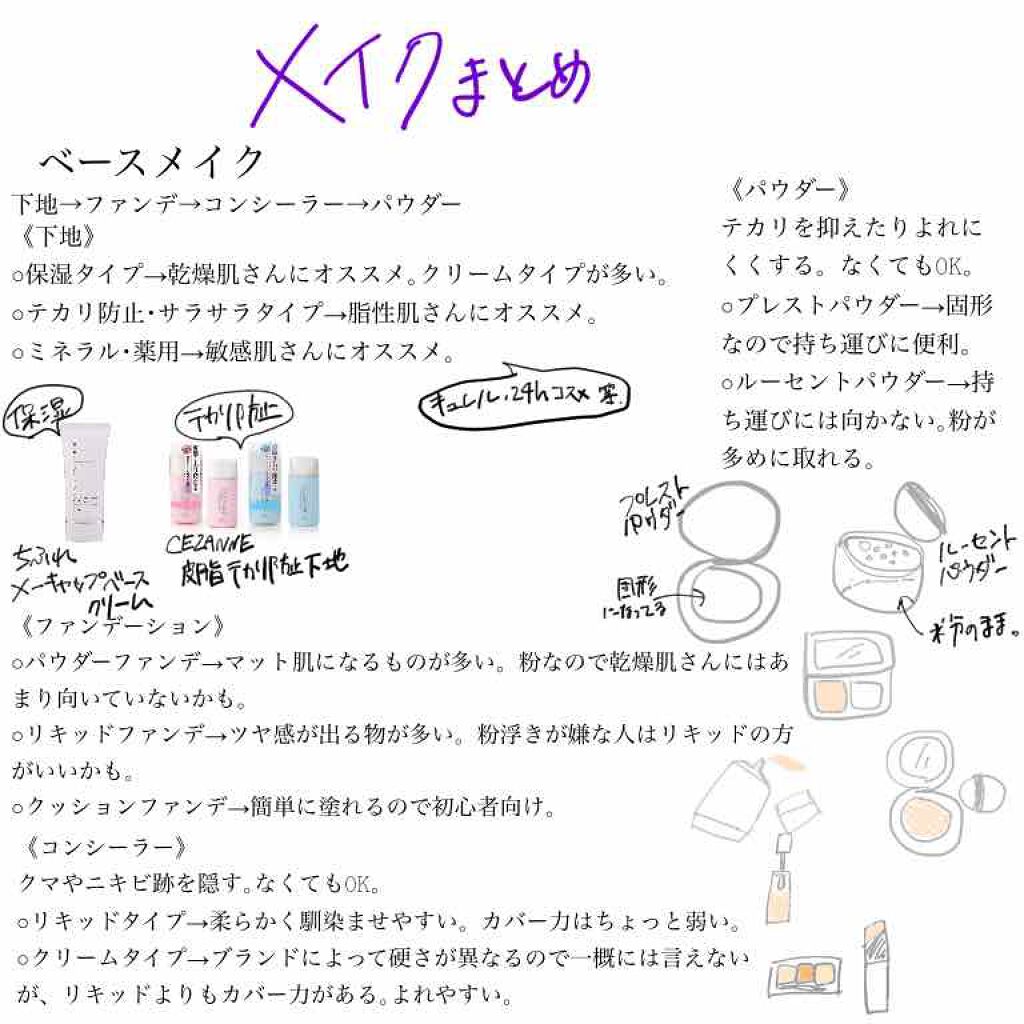 メイクまとめ
ベースメイク
下地→ファンデ→コンシーラー→パウダー
《下地》
○保湿タイプ→乾燥肌さんにオススメ。クリームタイプが多い。
○テカリ防止・サラサラタイプ→脂性肌さんにオススメ。
○ミネラル・薬用→敏感肌さんにオススメ。
キュレル・24hコスメ 等.
保湿
テカリ防止
ちふれ
メーキャップベース
クリーム
CEZANNE
皮脂テカリ防止下地
《パウダー》
テカリを抑えたりよれに
くくする。なくてもOK。
○プレストパウダー→固形
なので持ち運びに便利。
○ルーセントパウダー→持
ち運びには向かない。粉が
多めに取れる。
プレスト
パウダー
固形
になってる
ルーセント
パウダー
粉のまま。
《ファンデーション》
○パウダーファンデ→マット肌になるものが多い。粉なので乾燥肌さんにはあ
まり向いていないかも。
○リキッドファンデ→ツヤ感が出る物が多い。粉浮きが嫌な人はリキッドの方
がいいかも。
○クッションファンデ→簡単に塗れるので初心者向け。
《コンシーラー》
クマやニキビ跡を隠す。なくてもOK。
○リキッドタイプ→柔らかく馴染ませやすい。カバー力はちょっと弱い。
○クリームタイプ→ブランドによって硬さが異なるので一概には言えない
が、リキッドよりもカバー力がある。よれやすい。